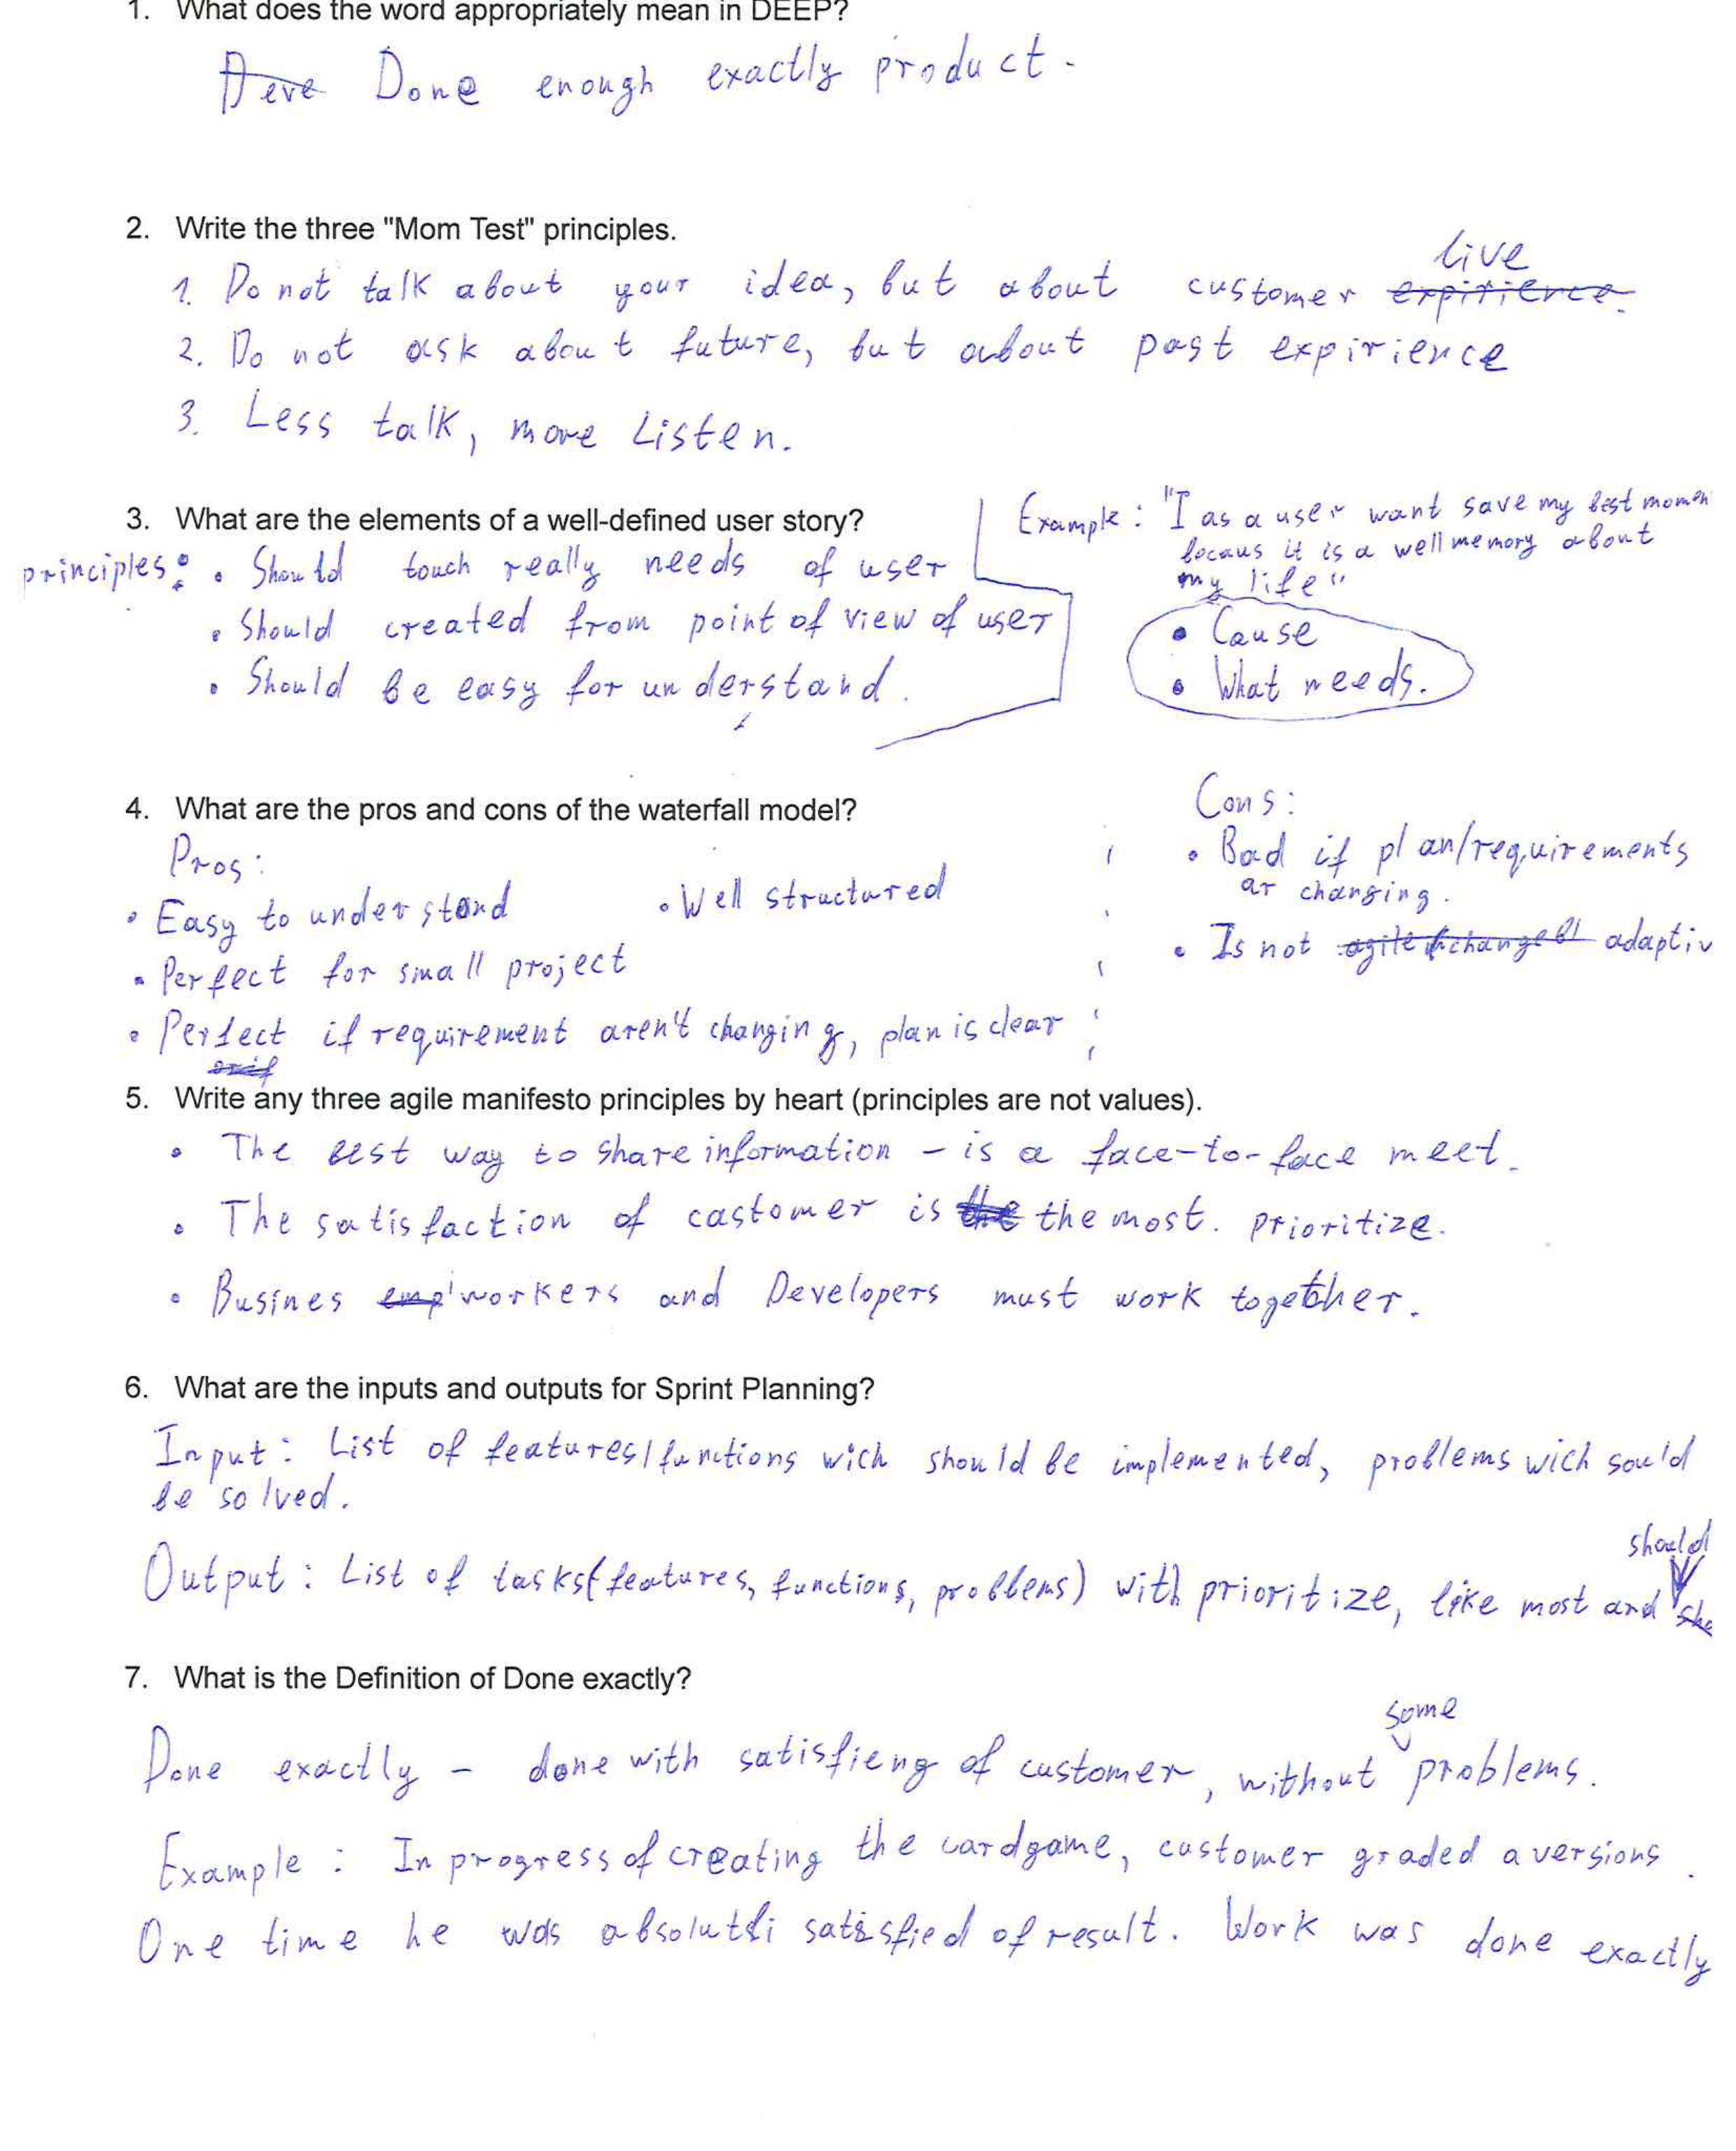 1. What does the word appropriately mean in DEEP?
Deve Done enough exactly product.
2. Write the three "Mom Test" principles.
live
1. Do not talk about your idea, but about customer expirience.
2. Do not ask about future, but about past expirience
3. Less talk, more Listen.
3. What are the elements of a well-defined user story?
principles: • Should touch really needs of user
• Should created from point of view of user
• Should be easy for understand.
Example: "I as a user want save my best momen
becaus it is a well memory about
my life"
• Cause
• What needs.
4. What are the pros and cons of the waterfall model?
Pros:
• Easy to understand • Well structured
• Perfect for small project
• Perfect if requirement aren't changing, plan is clear
Cons:
• Bad if plan/requirements
ar changing.
• Is not agile adaptiv
5. Write any three agile manifesto principles by heart (principles are not values).
• The best way to share information – is a face-to-face meet.
• The satisfaction of castomer is the the most. prioritize.
• Busines emp workers and Developers must work together.
6. What are the inputs and outputs for Sprint Planning?
Input: List of features/functions wich should be implemented, problems wich sould
be solved.
should
Output: List of tasks(features, functions, problems) with prioritize, like most and sho
7. What is the Definition of Done exactly?
some
Done exactly – done with satisfieng of customer, without problems.
Example: In progress of creating the cardgame, customer graded a versions.
One time he was absolutli satisfied of result. Work was done exactly